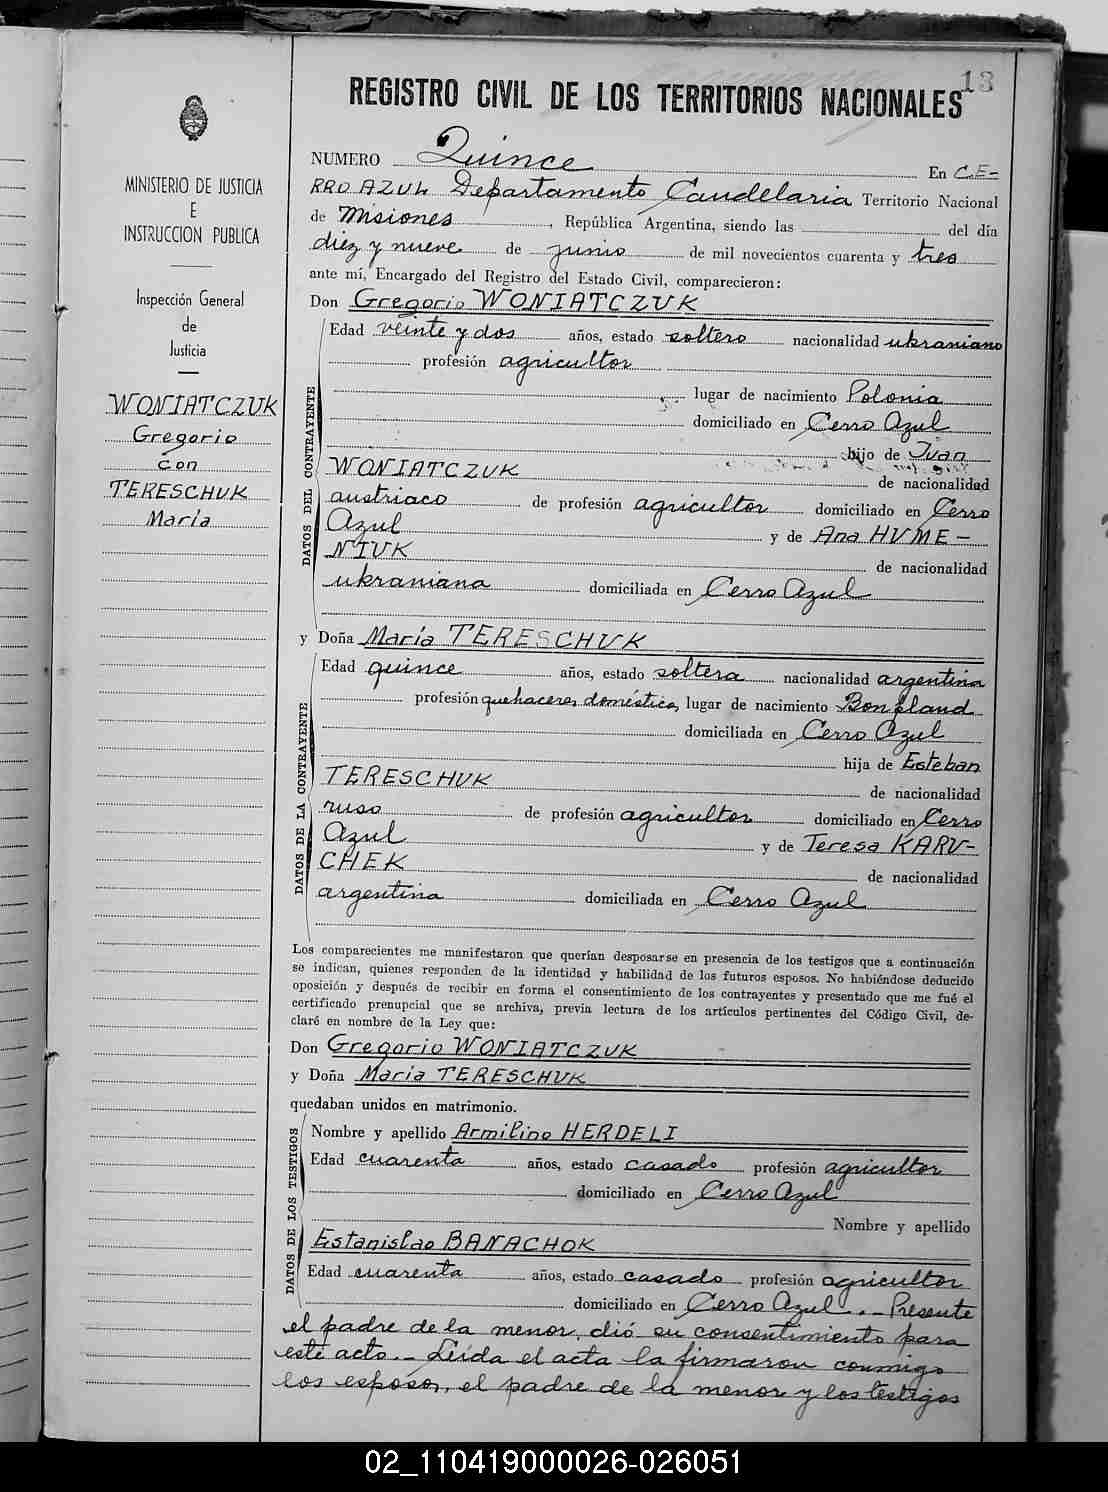 18
REGISTRO CIVIL DE LOS TERRITORIOS NACIONALES
MINISTERIO DE JUSTICIA
E
INSTRUCCION PUBLICA
Inspección General
de
Justicia
WONIATCZUK
Gregorio
con
TERESCHUK
María
NUMERO Quince En CE-
RRO AZUL Departamento Candelaria Territorio Nacional
de Misiones, República Argentina, siendo las del día
diez y nueve de junio de mil novecientos cuarenta y tres
ante mí, Encargado del Registro del Estado Civil, comparecieron:
Don Gregorio WONIATCZUK
DATOS DEL CONTRAYENTE
Edad veinte y dos años, estado soltero nacionalidad ukraniano
profesión agricultor
lugar de nacimiento Polonia
domiciliado en Cerro Azul
hijo de Iván
WONIATCZUK de nacionalidad
austriaco de profesión agricultor domiciliado en Cerro
Azul y de Ana HUME-
NIUK de nacionalidad
ukraniana domiciliada en Cerro Azul
y Doña María TERESCHUK
DATOS DE LA CONTRAYENTE
Edad quince años, estado soltera nacionalidad argentina
profesión quehaceres domésticos lugar de nacimiento Bonpland
domiciliada en Cerro Azul
hija de Esteban
TERESCHUK de nacionalidad
ruso de profesión agricultor domiciliado en Cerro
Azul y de Teresa KARU-
CHEK de nacionalidad
argentina domiciliada en Cerro Azul
Los comparecientes me manifestaron que querían desposarse en presencia de los testigos que a continuación
se indican, quienes responden de la identidad y habilidad de los futuros esposos. No habiéndose deducido
oposición y después de recibir en forma el consentimiento de los contrayentes y presentado que me fué el
certificado prenupcial que se archiva, previa lectura de los artículos pertinentes del Código Civil, de-
claré en nombre de la Ley que:
Don Gregorio WONIATCZUK
y Doña María TERESCHUK
quedaban unidos en matrimonio.
DATOS DE LOS TESTIGOS
Nombre y apellido Armilino HERDELI
Edad cuarenta años, estado casado profesión agricultor
domiciliado en Cerro Azul
Nombre y apellido
Estanislao BANACHOK
Edad cuarenta años, estado casado profesión agricultor
domiciliado en Cerro Azul.- Presente
el padre de la menor, dió su consentimiento para
este acto.- Leída el acta la firmaron conmigo
los esposos, el padre de la menor y los testigos
02_110419000026-026051